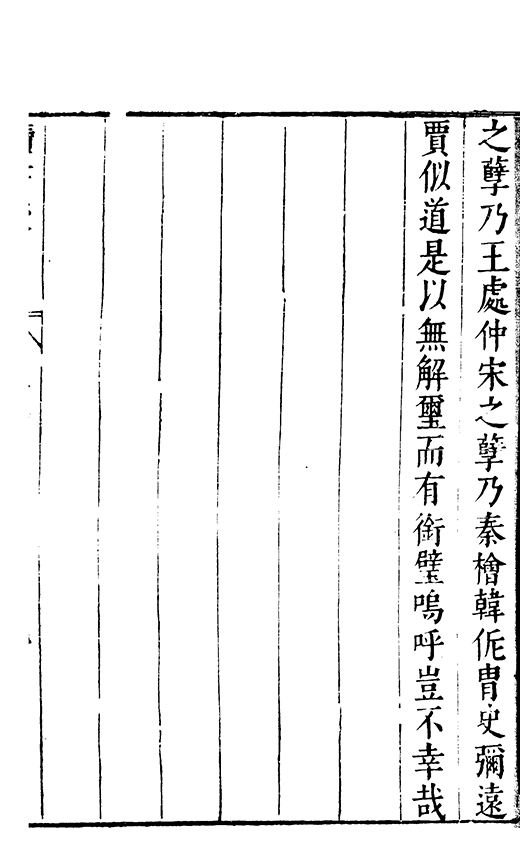 之孽乃王處仲宋之孽乃秦檜韓侂胄史彌遠
賈似道是以無解璽而有銜璧嗚呼豈不幸哉